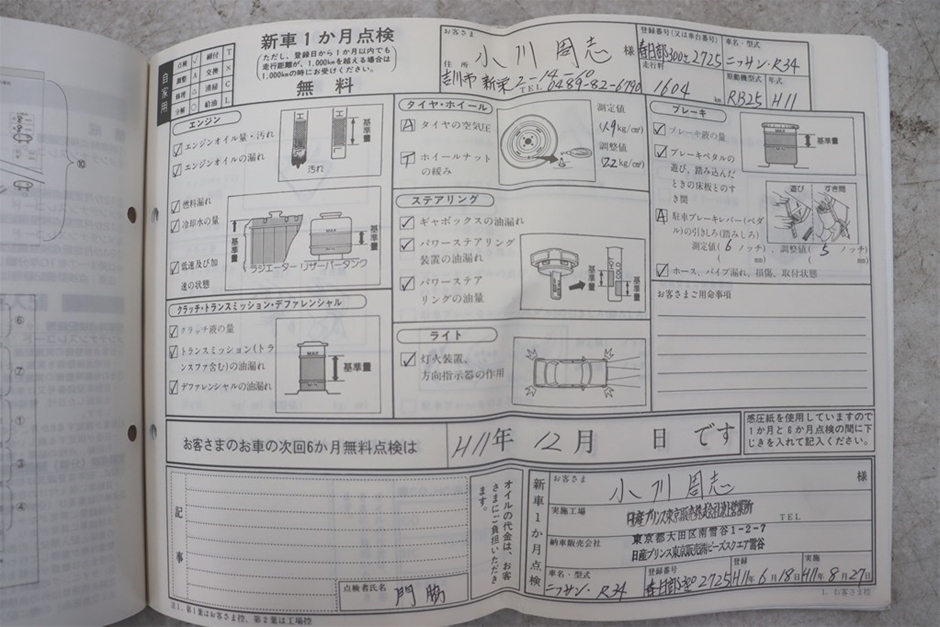 自家用
点検 レ 締付 T
調整 A 交換 ×
修理 △ 清掃 C
分解 ○ 給油 L
新車1か月点検
(ただし、登録日から1か月以内でも
走行距離が、1,000kmを越える場合は
1,000kmの時にお受けください。)
無料
お客さま 小川周志 様
住所 吉川市 新栄 2-14-60
TEL 0489-82-6790
登録番号(又は車台番号)
春日部300 2725
走行粁 1604 km
車名・型式
ニッサン・R34
原動機型式 年式
RB25 H11
エンジン
レ エンジンオイル量・汚れ
レ エンジンオイルの漏れ
工 工
基準量
汚れ
レ 燃料漏れ
レ 冷却水の量
レ 低速及び加
速の状態
基準量
基準量
ラジエーター リザーバータンク
クラッチ・トランスミッション・デファレンシャル
レ クラッチ液の量
レ トランスミッション(トラ
ンスファ含む)の油漏れ
レ デファレンシャルの油漏れ
MAX
基準量
タイヤ・ホイール
A タイヤの空気圧
T ホイールナット
の緩み
測定値
(1.9kg/cm²)
調整値
(2.2kg/cm²)
ステアリング
レ ギャボックスの油漏れ
レ パワーステアリング
装置の油漏れ
レ パワーステア
リングの油量
基準量
HOT
COLD
基準量
ライト
レ 灯火装置、
方向指示器の作用
ブレーキ
レ ブレーキ液の量
レ ブレーキペダルの
遊び、踏み込んだ
ときの床板とのす
き間
MAX
基準量
遊び すき間
A 駐車ブレーキレバー(ペダ
ル)の引きしろ(踏みしろ)
測定値( 6 ノッチ)、調整値( 5 ノッチ)
mm) mm)
レ ホース、パイプ漏れ、損傷、取付状態
お客さまご用命事項
お客さまのお車の次回6か月無料点検は H11年 12月 日です
感圧紙を使用していますので
1か月と6か月点検の間に下
じきを入れて記入ください。
記事
点検者氏名 門脇
オイルの代金は、お客
さまにご負担いただき
ます。
新車1か月点検
お客さま 小川周志 様
実施工場 TEL
納車販売会社
東京都大田区南雪谷1-2-7
日産プリンス東京販売㈱ビーズスクエア雪谷
車名・型式 登録番号 登録 実施
ニッサン・R34 春日部300 2725 H11年6月18日 H11年8月27日
注1. 第1葉はお客さま控、第2葉は工場控
1. お客さま控
⑩
⑥
⑦
①
③
④